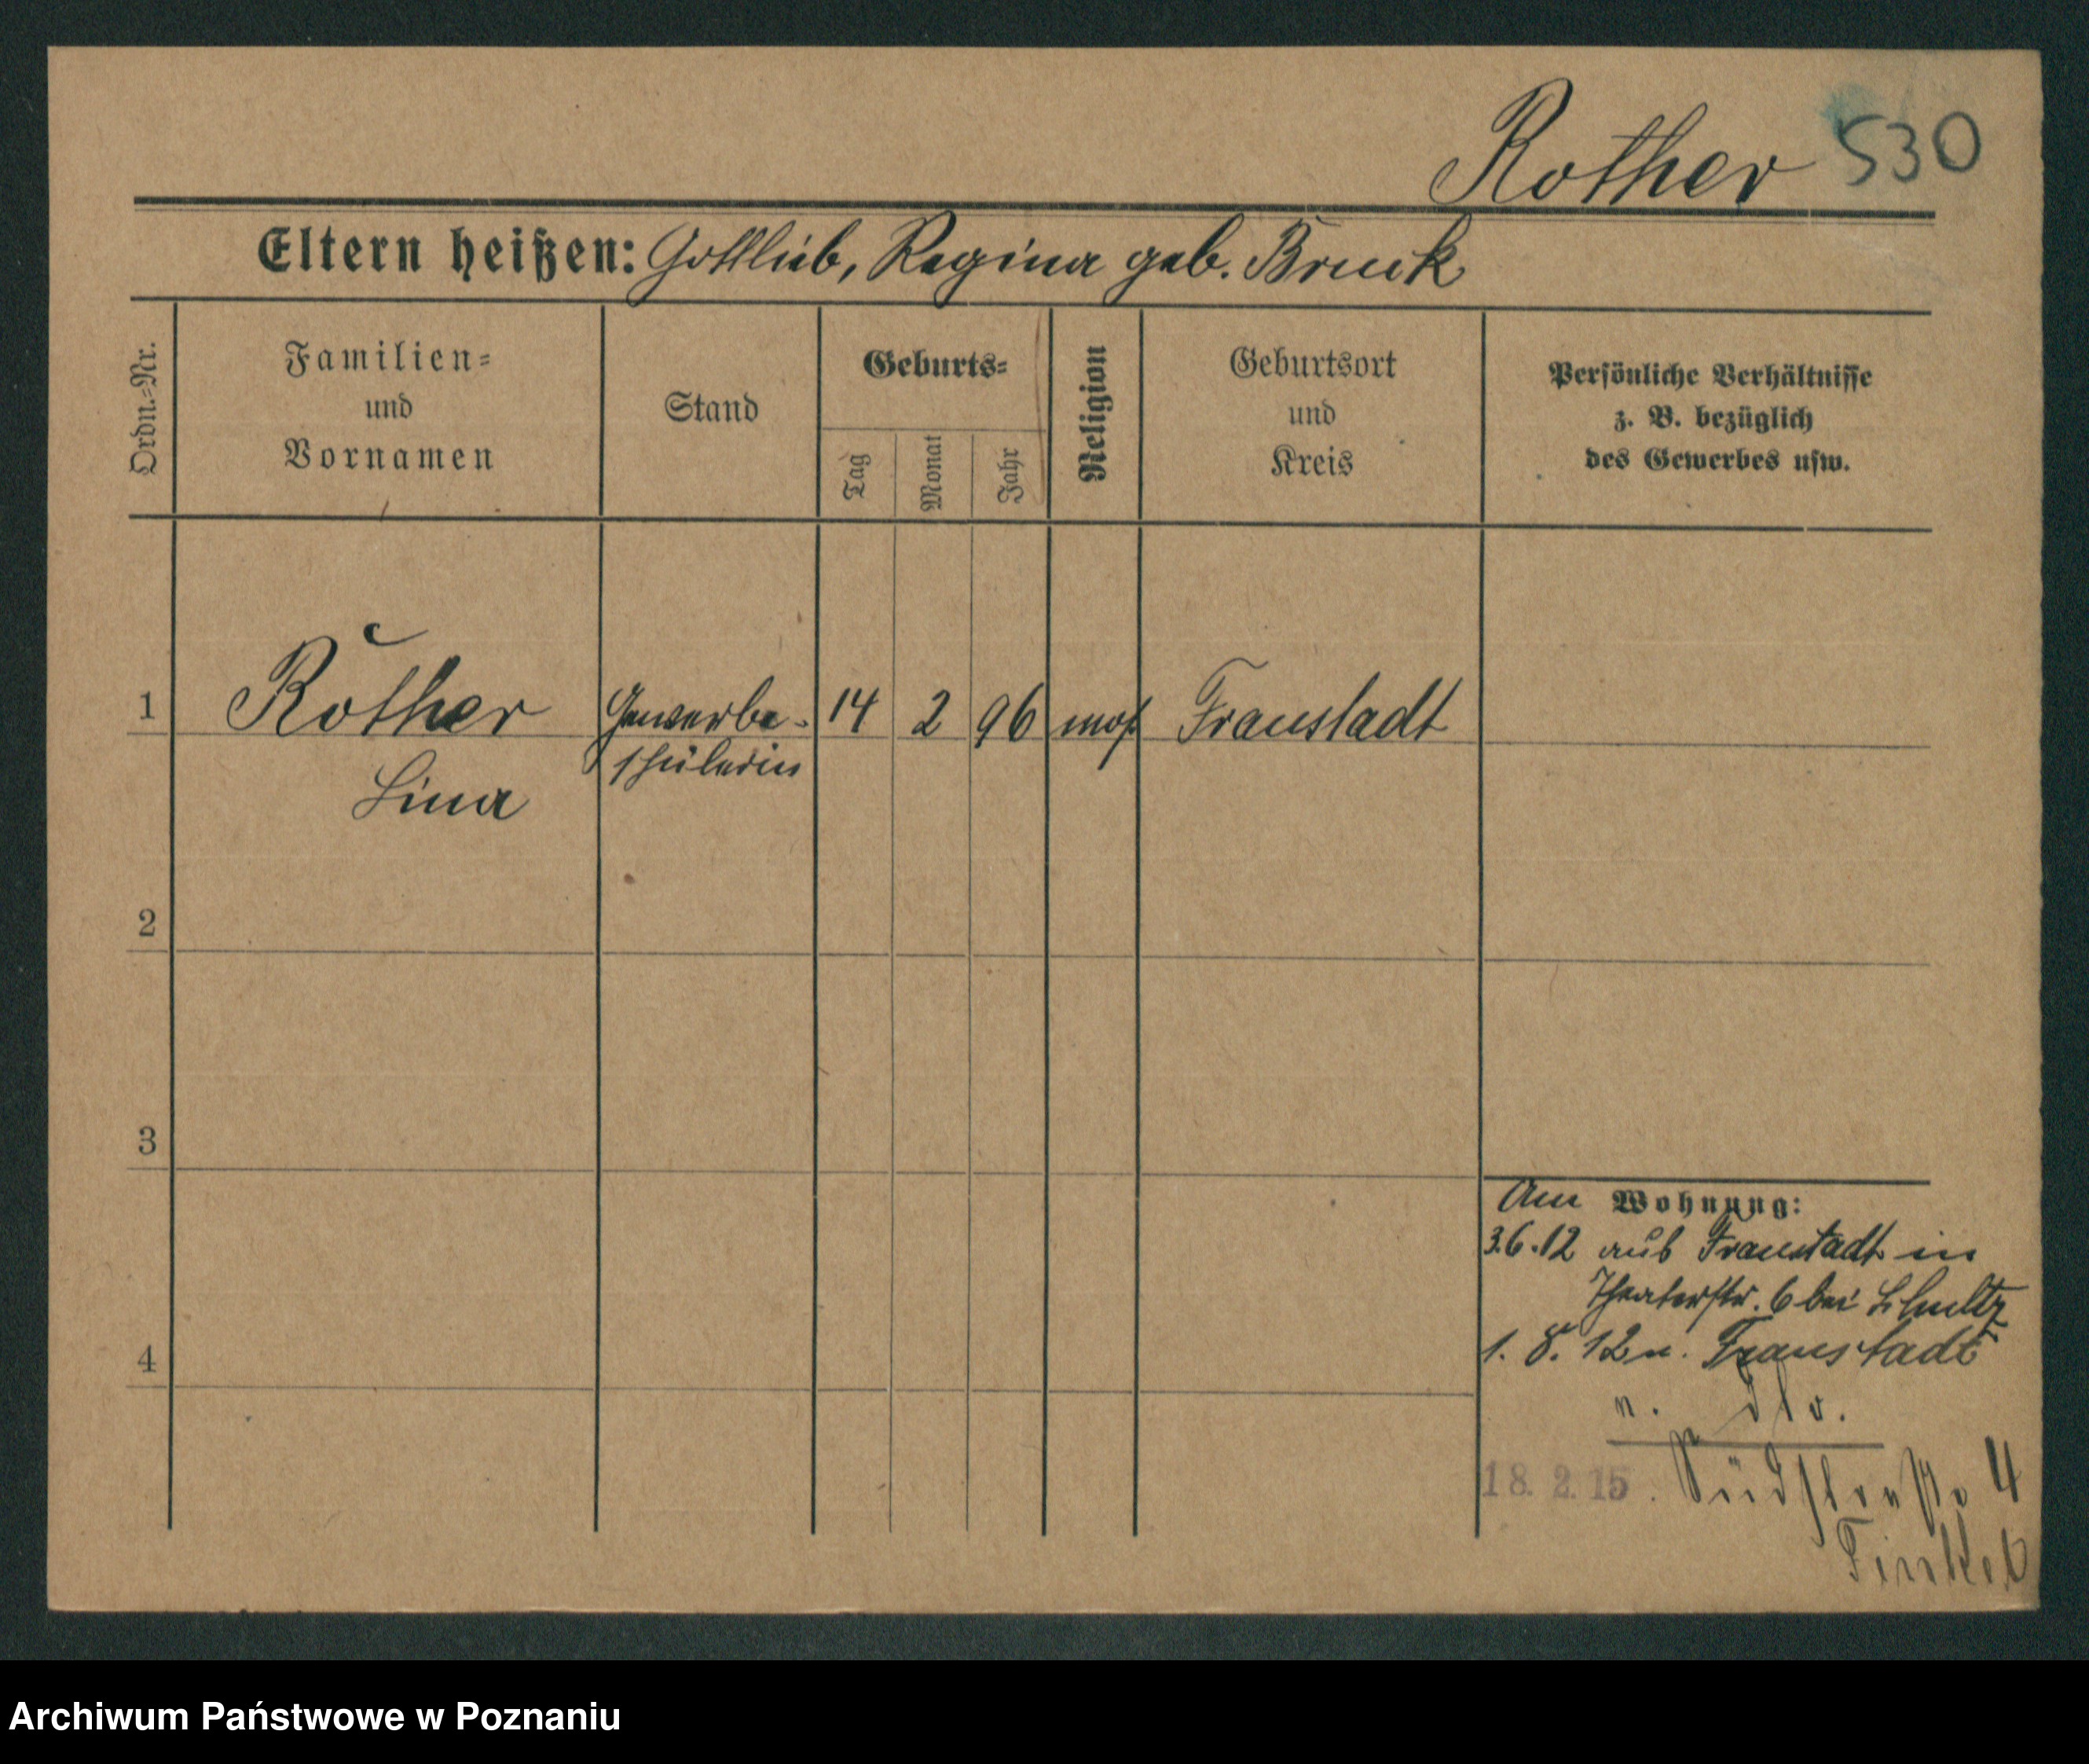 Rother 530
Eltern heißen: Gottlieb, Regina geb. Bruck
Ordn.-Nr.
Familien-
und
Vornamen
Stand
Geburts-
Tag
Monat
Jahr
Religion
Geburtsort
und
Kreis
Persönliche Verhältnisse
z. B. bezüglich
des Gewerbes usw.
1 Rother Gewerbe- 14 2 96 mos Fraustadt
schülerin
Lina
2
3
4
Am Wohnung:
3.6.12 aus Fraustadt in
Theaterstr. 6 bei Schultz
1. 8. 12 n. Fraustadt
n.
18. 2. 15. Südstraße 4
Archiwum Państwowe w Poznaniu